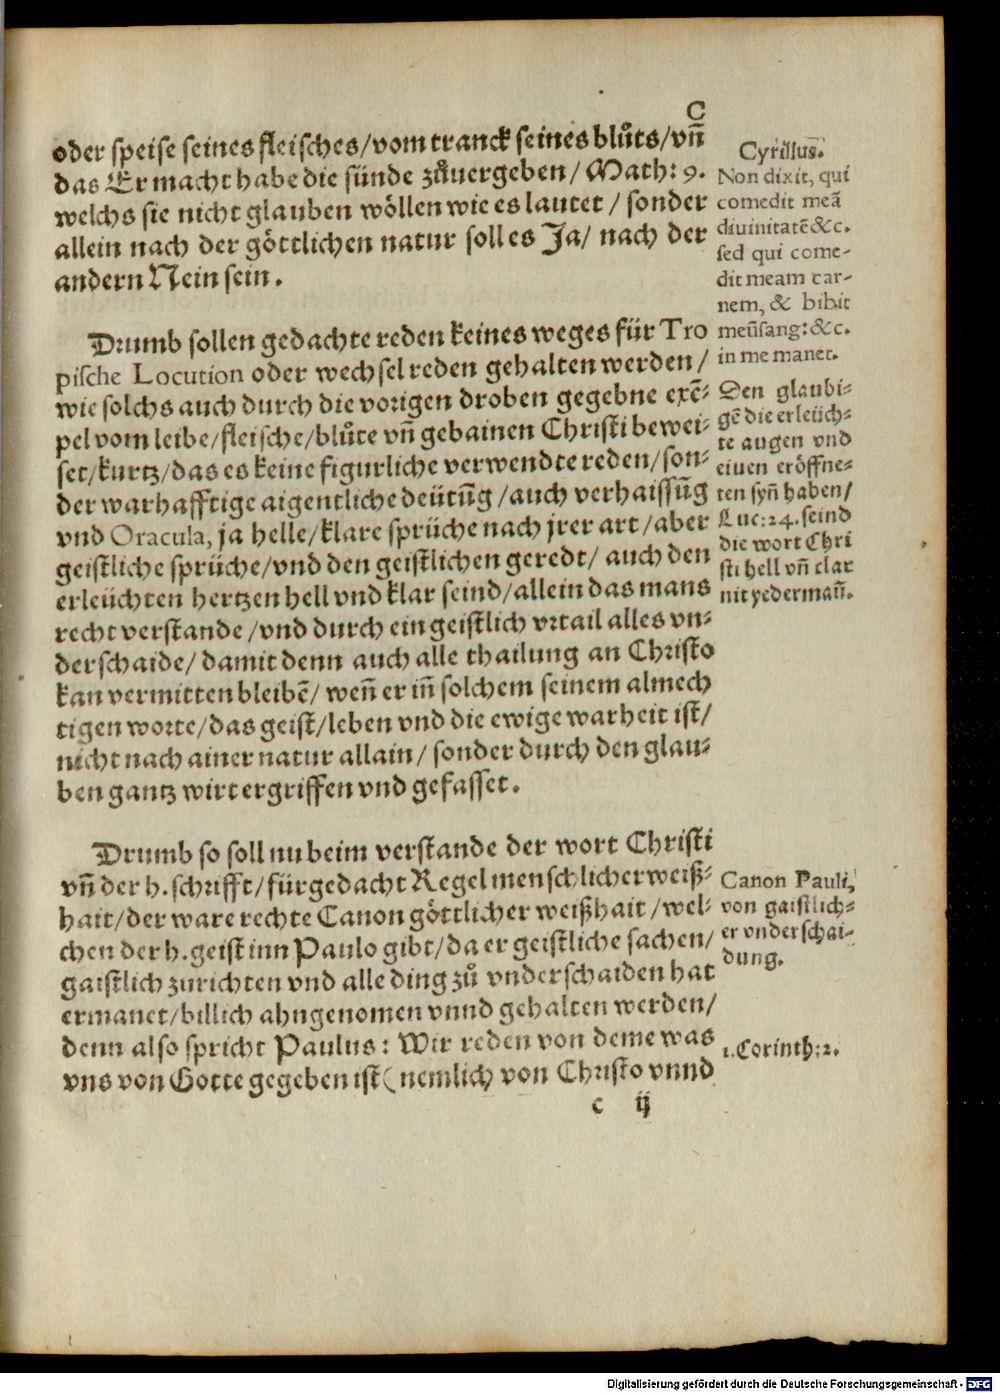 C
oder speise seines fleisches/vom tranck seines blůts/vñ
das Er macht habe die sünde zůuergeben/ Math: 9.
welchs sie nicht glauben wöllen wie es lautet / sonder
allein nach der göttlichen natur soll es Ja/ nach der
andern Nein sein.
Drumb sollen gedachte reden keines weges für Tro
pische Locution oder wechsel reden gehalten werden/
wie solchs auch durch die vorigen droben gegebne exẽ-
pel vom leibe/fleische/blůte vñ gebainen Christi bewei-
set/kurtz/das es keine figurliche verwendte reden/son-
der warhafftige aigentliche deütũg /auch verhaissũg
vnd Oracula, ja helle/klare sprüche nach jrer art/aber
geistliche sprüche/vnd den geistlichen geredt/ auch den
erleüchten hertzen hell vnd klar seind/allein das mans
recht verstande /vnd durch ein geistlich vrtail alles vn-
derschaide/ damit denn auch alle thailung an Christo
kan vermitten bleibẽ/ weñ er iñ solchem seinem almech
tigen worte/das geist/leben vnd die ewige warheit ist/
nicht nach ainer natur allain/ sonder durch den glau-
ben gantz wirt ergriffen vnd gefasset.
Drumb so soll nu beim verstande der wort Christi
vñ der h. schrifft/fürgedacht Regel menschlicher weiß-
hait/der ware rechte Canon göttlicher weißhait /wel-
chen der h. geist inn Paulo gibt/da er geistliche sachen/
gaistlich zurichten vnd alle ding zů vnderschaiden hat
ermanet/billich ahngenomen vnnd gehalten werden/
denn also spricht Paulus: Wir reden von deme was
vns von Gotte gegeben ist (nemlich von Christo vnnd
c ij
Cyrillus.
Non dixit, qui
comedit meã
diuinitatẽ &c.
sed qui come-
dit meam car-
nem, & bibit
meũ sang: &c.
in me manet.
Den glaubi-
gẽ die erleüch-
te augen vnd
einen eröffne-
ten syñ haben/
Luc: 24. seind
die wort Chri
sti hell vñ clar
nit yedermañ.
Canon Pauli,
von gaistlich-
er vnderschai-
dung.
1. Corinth: 2.
Digitalisierung gefördert durch die Deutsche Forschungsgemeinschaft - DFG